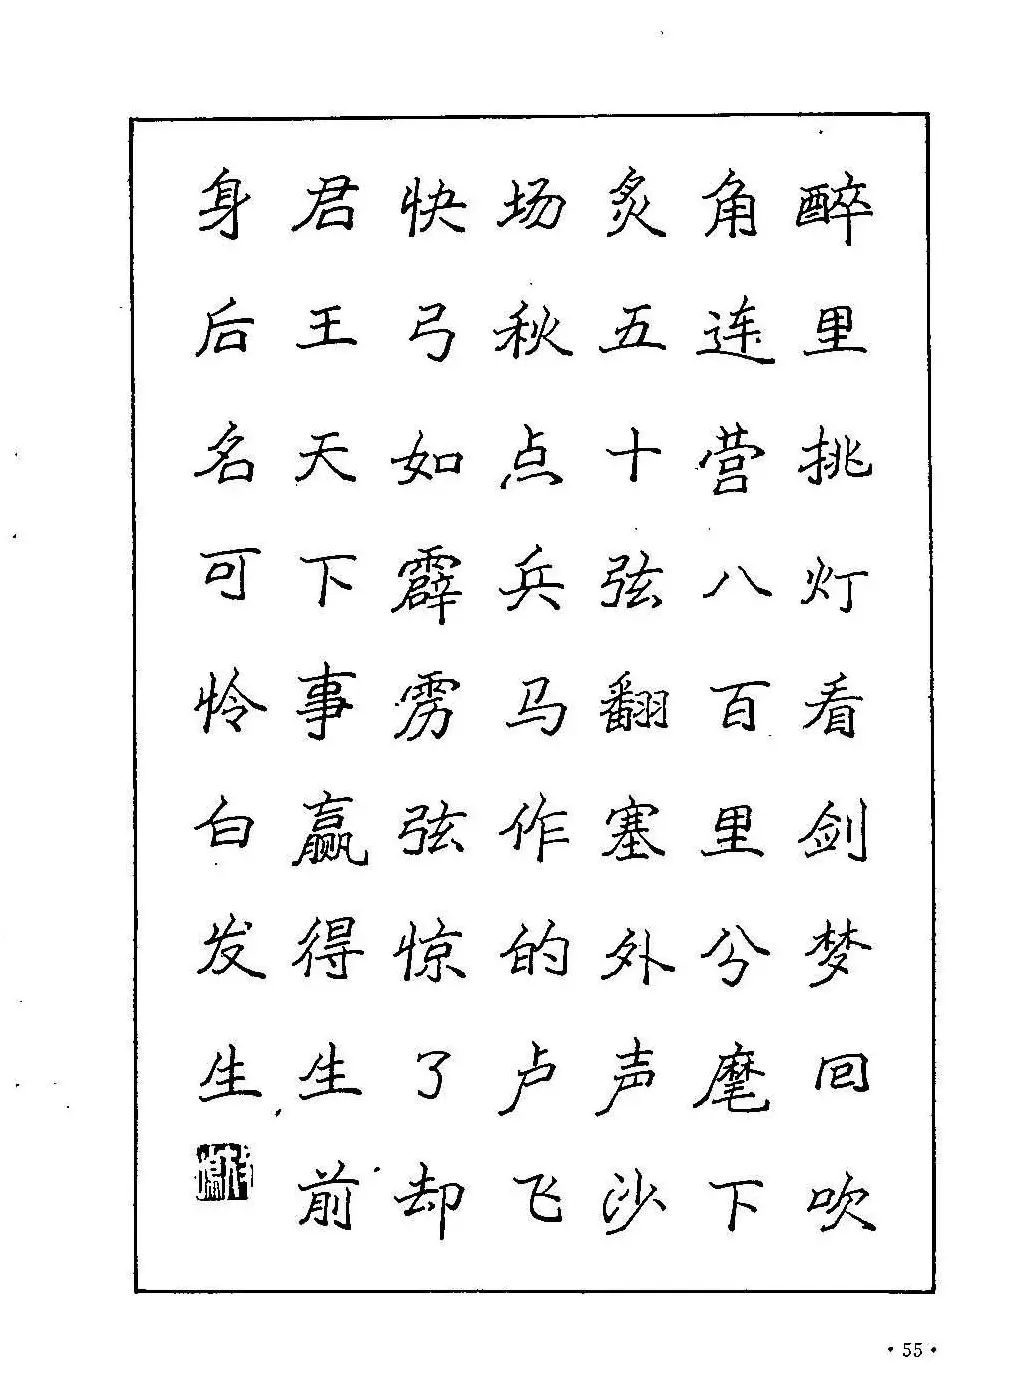 醉里挑灯看剑梦回吹
角连营八百里兮麾下
炙五十弦翻塞外声沙
场秋点兵马作的卢飞
快弓如霹雳弦惊了却
君王天下事赢得生前
身后名可怜白发生
·55·